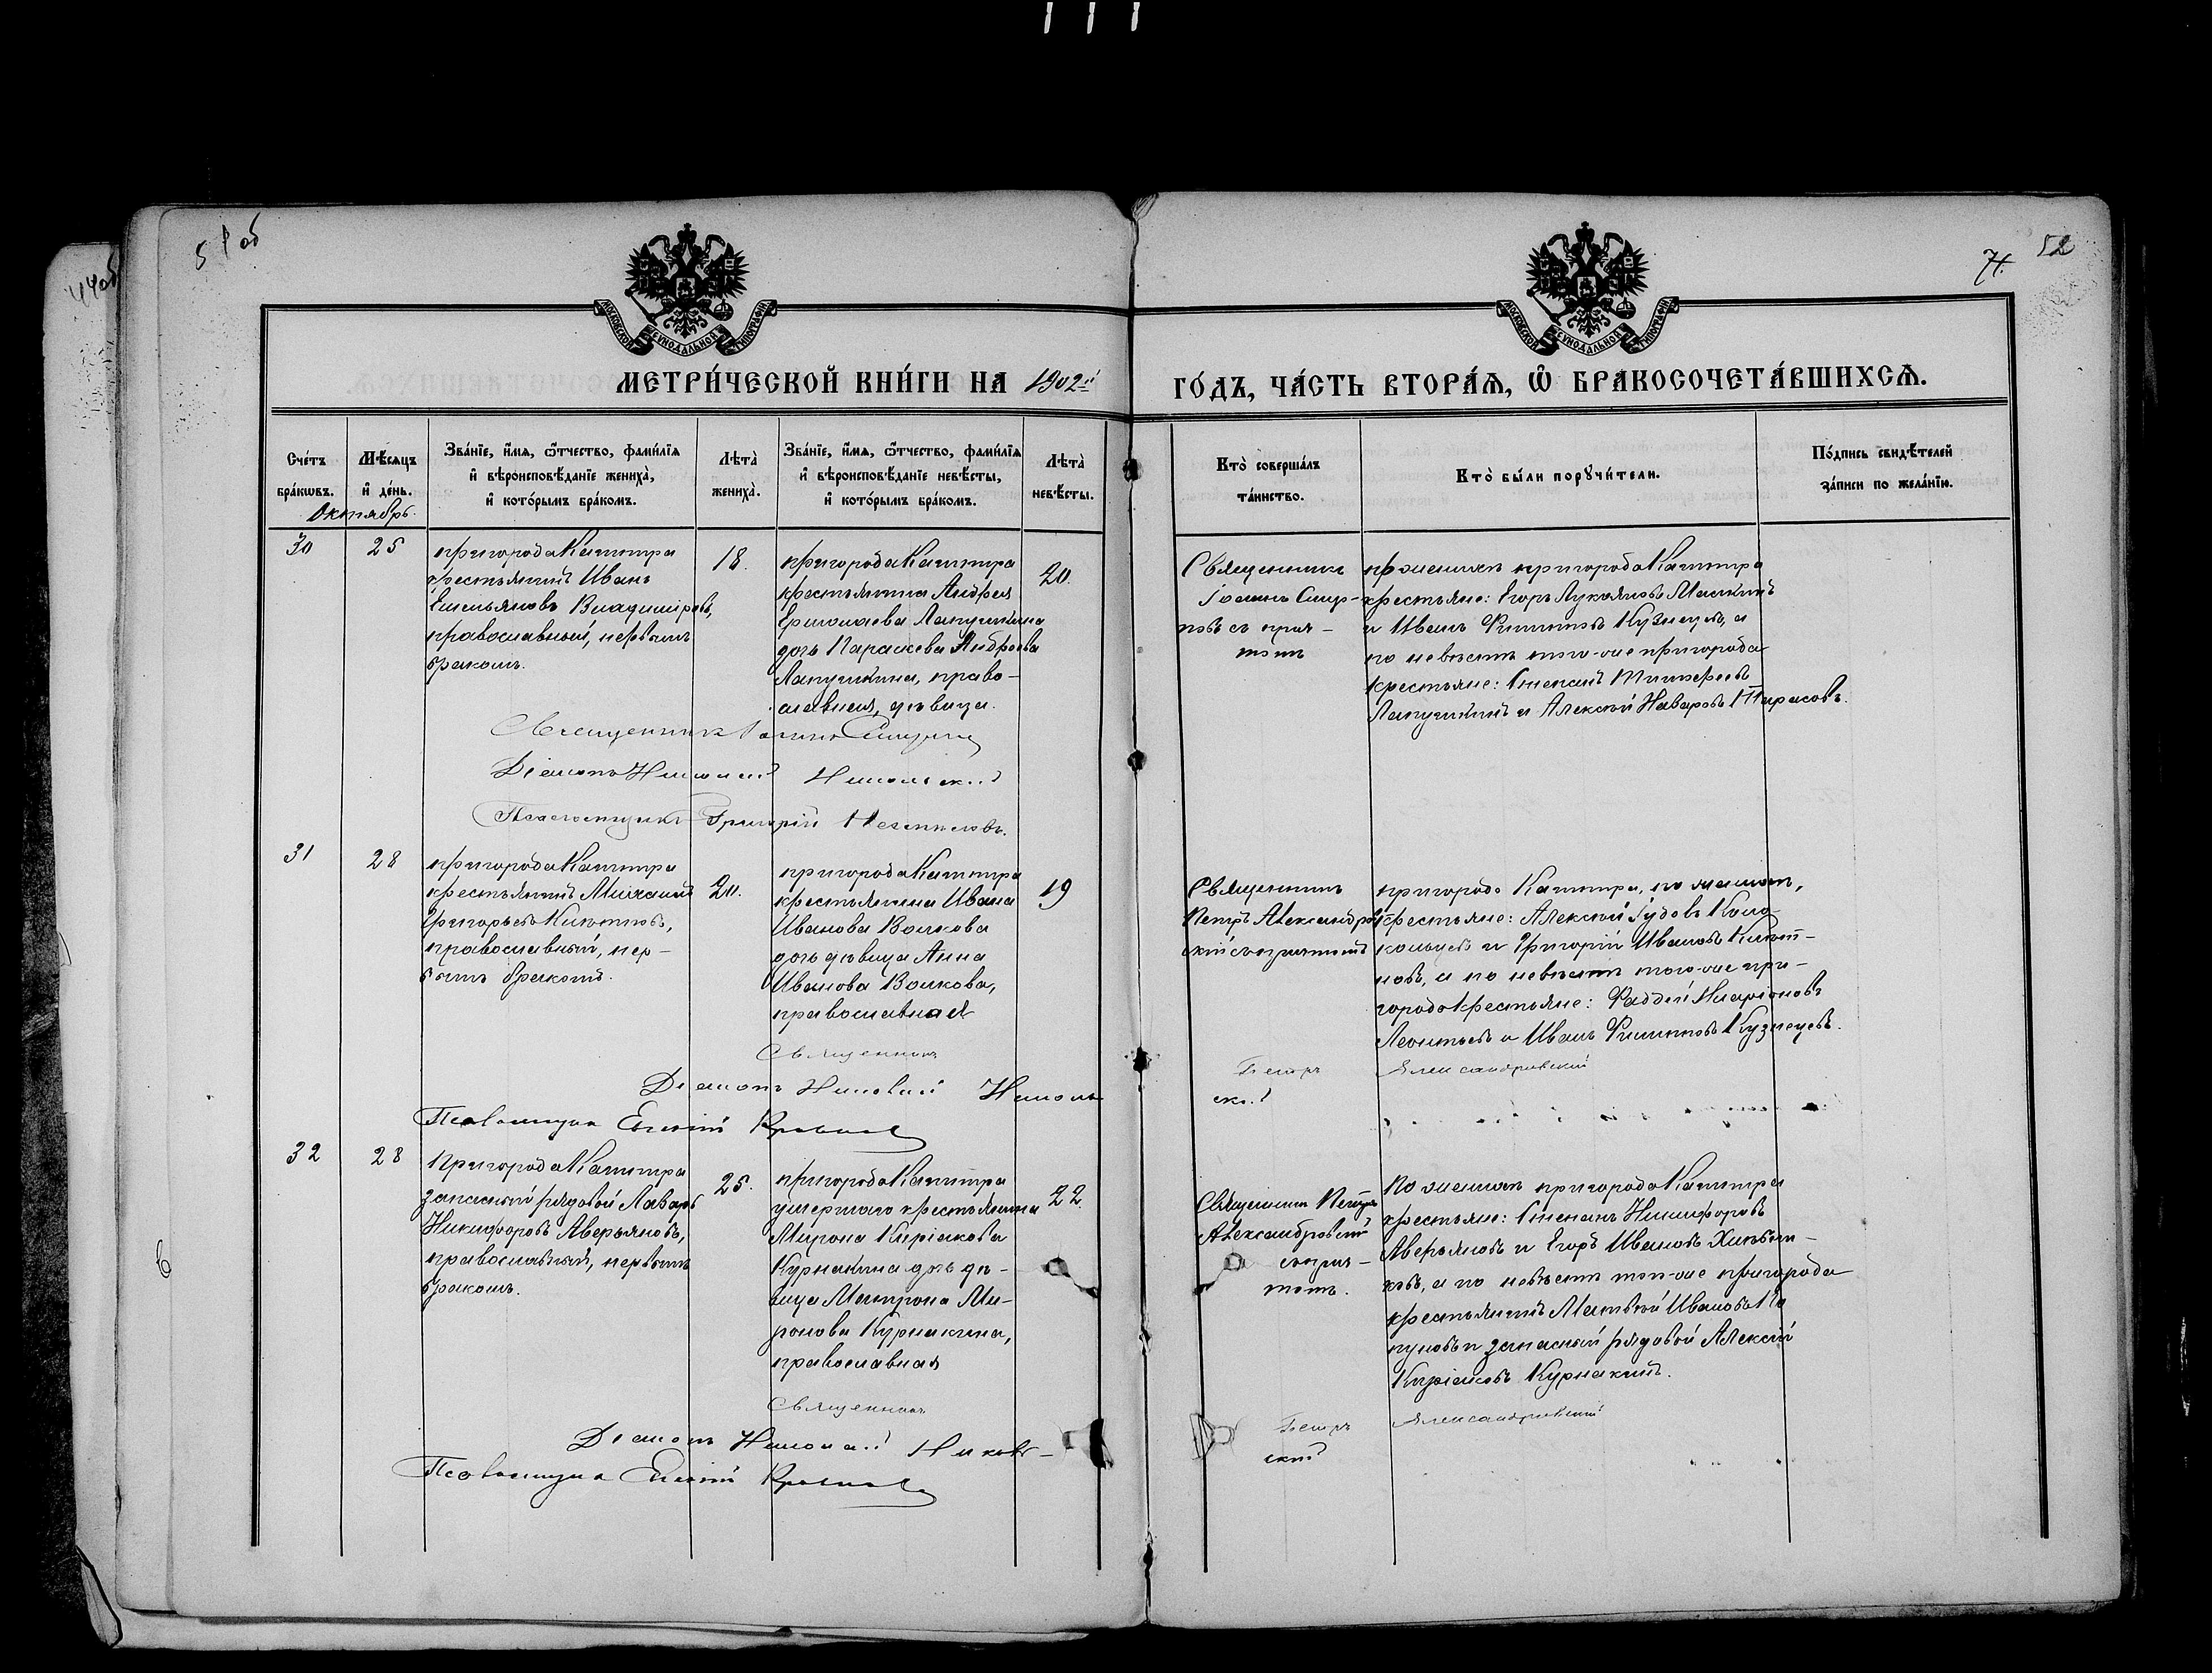 51 об
52
71.
44 об
МОСКОВСКОЙ СѴНОДАЛЬНОЙ ТИПОГРАФІИ
МОСКОВСКОЙ СѴНОДАЛЬНОЙ ТИПОГРАФІИ
МЕТРИ́ЧЕСКОЙ КНИ́ГИ НА 1902й ГО́ДЪ, ЧА́СТЬ ВТОРА́Ѧ, Ѽ БРАКОСОЧЕТА́ВШИХСѦ.
Сче́тъ
бра́кѡвъ.
Мѣ́сяцъ
и҆ де́нь.
Зва́нїе, и҆́мѧ, ѻ҆́тчество, фами́лїѧ
и҆ вѣроисповѣ́данїе жениха̀,
и҆ кото́рымъ бра́комъ.
Лѣта̀
жениха̀.
Зва́нїе, и҆́мѧ, ѻ҆́тчество, фами́лїѧ
и҆ вѣроисповѣ́данїе невѣ́сты,
и҆ кото́рымъ бра́комъ.
Лѣта̀
невѣ́сты.
Кто̀ соверша́лъ
та́инство.
Кто̀ бы́ли порꙋчи́тели.
По́дпись свидѣ́телей
за́писи по жела́нїю.
Октябрь.
30
25
пригорода Каштра
крестьянинъ Иванъ
Емельяновъ Владиміровъ,
православный, первымъ
бракомъ.
18.
пригорода Каштра
крестьянина Андрея
Ермолаева Лапушкина
дочь Параскева Андреева
Лапушкина, право-
славная, дѣвица.
20.
Священникъ
Іоаннъ Смир-
новъ съ прич-
томъ
по женихѣ пригорода Каштра
крестьяне: Егоръ Лукояновъ Маскинъ
и Иванъ Филиповъ Кузнецовъ, а
по невѣстѣ того-же пригорода
крестьяне: Степанъ Тимофеевъ
Лапушкинъ и Алексѣй Назаровъ Тарасовъ.
Священникъ Іоаннъ Смирновъ
Діаконъ Николай Никольскій
Псаломщикъ Григорій
31
28
пригорода Каштра
крестьянинъ Михаилъ
Григорьевъ
православный, пер-
вымъ бракомъ.
20.
пригорода Каштра
крестьянина Ивана
Иванова Волкова
дочь дѣвица Анна
Иванова Волкова,
православная
19
Священникъ
Петръ Александров-
скій съ причтомъ
пригорода Каштра, по женихѣ,
крестьяне: Алексѣй Гудовъ Коло-
кольцевъ и Григорій Ивановъ
новъ, а по невѣстѣ того-же при-
города крестьяне: Фаддей Иларіоновъ
Леонтьевъ и Иванъ Филиповъ Кузнецовъ.
Священникъ Петръ Александровскій
Діаконъ Николай Никольскій
Псаломщикъ Евгеній
32
28
Пригорода Каштра
запасный рядовой Лаваръ
Никифоровъ Аверьяновъ,
православный, первымъ
бракомъ.
25.
пригорода Каштра
умершаго крестьянина
Мирона Киріакова
Курнакина дочь дѣ-
вица Матрона Ми-
ронова Курнакина,
православная
22.
Священникъ Петръ
Александровскій
съ прич-
томъ.
По женихѣ пригорода Каштра
крестьяне: Степанъ Никифоровъ
Аверьяновъ и Егоръ Ивановъ
ковъ, а по невѣстѣ того-же пригорода
крестьянинъ Матвѣй Ивановъ Ка-
пуновъ и запасный рядовой Алексій
Киріаковъ Курнакинъ.
Священникъ Петръ Александровскій
Діаконъ Николай Никольскій
Псаломщикъ Евгеній